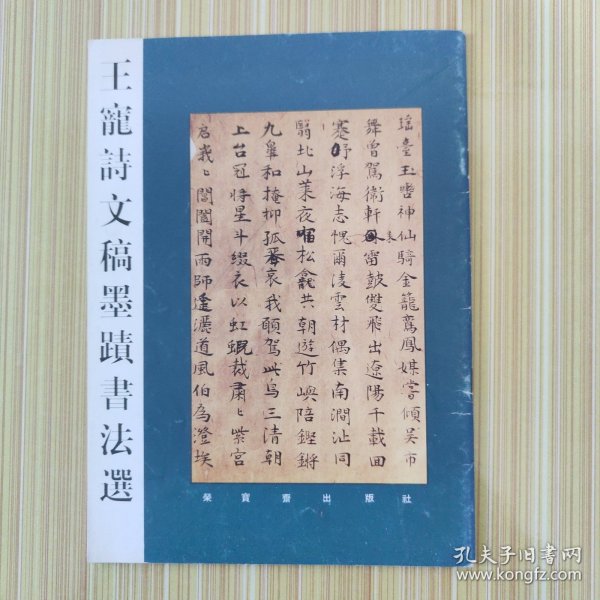 王寵詩文稿墨蹟書法選
瑤臺玉嘴神仙騎金籠鸞鳳媒嘗傾吴市
舞曾駕衛軒雷鼓雙飛出遼陽千載回
蹇浮海志愧爾淩雲材偶集南澗沚同
翳北山萊夜松龕共朝遊竹嶼陪鏗鏘
九皐和掩抑孤哀我願駕此鳥三清朝
上台冠將星斗綴衣以虹蜺裁肅〻紫宮
啓我〻閶闔開雨師遥灑道風伯為澄埃
榮寶齋出版社
孔夫子旧书网
www.kongfz.com